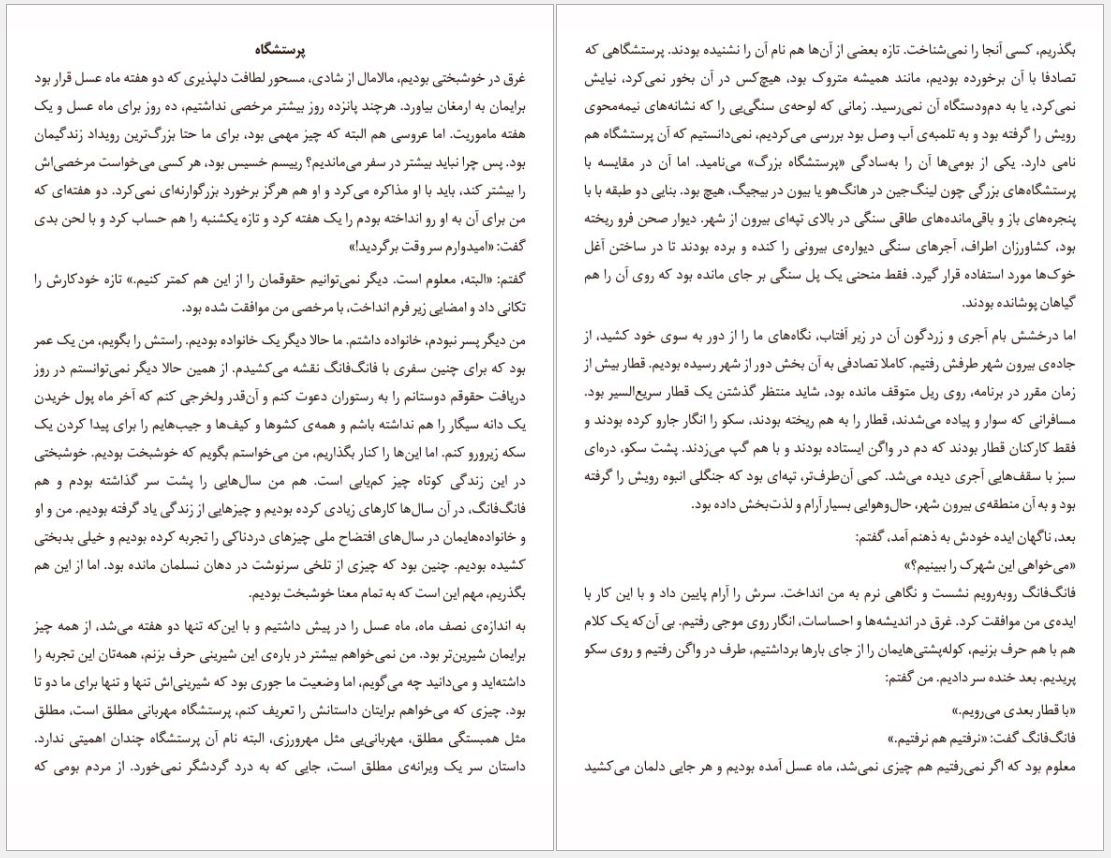 پرستشگاه
غرق در خوشبختی بودیم، مالامال از شادی، مسحور لطافت دلپذیری که دو هفته ماه عسل قرار بود
برایمان به ارمغان بیاورد. هرچند پانزده روز بیشتر مرخصی نداشتیم، ده روز برای ماه عسل و یک
هفته ماموریت. اما عروسی هم البته که چیز مهمی بود، برای ما حتا بزرگ‌ترین رویداد زندگیمان
بود. پس چرا نباید بیشتر در سفر می‌ماندیم؟ رییسم خسیس بود، هر کسی می‌خواست مرخصی‌اش
را بیشتر کند، باید با او مذاکره می‌کرد و او هم هرگز برخورد بزرگوارنه‌ای نمی‌کرد. دو هفته‌ای که
من برای آن به او رو انداخته بودم را یک هفته کرد و تازه یکشنبه را هم حساب کرد و با لحن بدی
گفت: «امیدوارم سر وقت برگردید!»
گفتم: «البته، معلوم است. دیگر نمی‌توانیم حقوقمان را از این هم کمتر کنیم.» تازه خودکارش را
تکانی داد و امضایی زیر فرم انداخت، با مرخصی من موافقت شده بود.
من دیگر پسر نبودم، خانواده داشتم. ما حالا دیگر یک خانواده بودیم. راستش را بگویم، من یک عمر
بود که برای چنین سفری با فانگ‌فانگ نقشه می‌کشیدم. از همین حالا دیگر نمی‌توانستم در روز
دریافت حقوقم دوستانم را به رستوران دعوت کنم و آن‌قدر ولخرجی کنم که آخر ماه پول خریدن
یک دانه سیگار را هم نداشته باشم و همه‌ی کشوها و کیف‌ها و جیب‌هایم را برای پیدا کردن یک
سکه زیرورو کنم. اما این‌ها را کنار بگذاریم، من می‌خواستم بگویم که خوشبخت بودیم. خوشبختی
در این زندگی کوتاه چیز کم‌یابی است. هم من سال‌هایی را پشت سر گذاشته بودم و هم
فانگ‌فانگ، در آن سال‌ها کارهای زیادی کرده بودیم و چیزهایی از زندگی یاد گرفته بودیم. من و او
و خانواده‌هایمان در سال‌های افتضاح ملی چیزهای دردناکی را تجربه کرده بودیم و خیلی بدبختی
کشیده بودیم. چنین بود که چیزی از تلخی سرنوشت در دهان نسلمان مانده بود. اما از این هم
بگذریم، مهم این است که به تمام معنا خوشبخت بودیم.
به اندازه‌ی نصف ماه، ماه عسل را در پیش داشتیم و با این‌که تنها دو هفته می‌شد، از همه چیز
برایمان شیرین‌تر بود. من نمی‌خواهم بیشتر در باره‌ی این شیرینی حرف بزنم، همه‌تان این تجربه را
داشته‌اید و می‌دانید چه می‌گویم، اما وضعیت ما جوری بود که شیرینی‌اش تنها و تنها برای ما دو تا
بود. چیزی که می‌خواهم برایتان داستانش را تعریف کنم، پرستشگاه مهربانی مطلق است، مطلق
مثل همبستگی مطلق، مهربانی‌یی مثل مهرورزی، البته نام آن پرستشگاه چندان اهمیتی ندارد.
داستان سر یک ویرانه‌ی مطلق است، جایی که به درد گردشگر نمی‌خورد. از مردم بومی که
بگذریم، کسی آنجا را نمی‌شناخت. تازه بعضی از آن‌ها هم نام آن را نشنیده بودند. پرستشگاهی که
تصادفا با آن برخورده بودیم، مانند همیشه متروک بود، هیچ‌کس در آن بخور نمی‌کرد، نیایش
نمی‌کرد، یا به دم‌ودستگاه آن نمی‌رسید. زمانی که لوحه‌ی سنگی‌یی را که نشانه‌های نیمه‌محوی
رویش را گرفته بود و به تلمبه‌ی آب وصل بود بررسی می‌کردیم، نمی‌دانستیم که آن پرستشگاه هم
نامی دارد. یکی از بومی‌ها آن را به‌سادگی «پرستشگاه بزرگ» می‌نامید. اما آن در مقایسه با
پرستشگاه‌های بزرگی چون لینگ‌جین در هانگ‌هو یا بیون در بیجینگ، هیچ بود. بنایی دو طبقه با با
پنجره‌های باز و باقی‌مانده‌های طاقی سنگی در بالای تپه‌ای بیرون از شهر. دیوار صحن فرو ریخته
بود، کشاورزان اطراف، آجرهای سنگی دیواره‌ی بیرونی را کنده و برده بودند تا در ساختن آغل
خوک‌ها مورد استفاده قرار گیرد. فقط منحنی یک پل سنگی بر جای مانده بود که روی آن را هم
گیاهان پوشانده بودند.
اما درخشش بام آجری و زردگون آن در زیر آفتاب، نگاه‌های ما را از دور به سوی خود کشید، از
جاده‌ی بیرون شهر طرفش رفتیم. کاملا تصادفی به آن بخش دور از شهر رسیده بودیم. قطار بیش از
زمان مقرر در برنامه، روی ریل متوقف مانده بود، شاید منتظر گذشتن یک قطار سریع‌السیر بود.
مسافرانی که سوار و پیاده می‌شدند، قطار را به هم ریخته بودند، سکو را انگار جارو کرده بودند و
فقط کارکنان قطار بودند که دم در واگن ایستاده بودند و با هم گپ می‌زدند. پشت سکو، دره‌ای
سبز با سقف‌هایی آجری دیده می‌شد. کمی آن‌طرف‌تر، تپه‌ای بود که جنگلی انبوه رویش را گرفته
بود و به آن منطقه‌ی بیرون شهر، حال‌وهوایی بسیار آرام و لذت‌بخش داده بود.
بعد، ناگهان ایده خودش به ذهنم آمد، گفتم:
«می‌خواهی این شهرک را ببینیم؟»
فانگ‌فانگ روبه‌رویم نشست و نگاهی نرم به من انداخت. سرش را آرام پایین داد و با این کار با
ایده‌ی من موافقت کرد. غرق در اندیشه‌ها و احساسات، انگار روی موجی رفتیم. بی آن‌که یک کلام
هم با هم حرف بزنیم، کوله‌پشتی‌هایمان را از جای بارها برداشتیم، طرف در واگن رفتیم و روی سکو
پریدیم. بعد خنده سر دادیم. من گفتم:
«با قطار بعدی می‌رویم.»
فانگ‌فانگ گفت: «نرفتیم هم نرفتیم.»
معلوم بود که اگر نمی‌رفتیم هم چیزی نمی‌شد، ماه عسل آمده بودیم و هر جایی دلمان می‌کشید